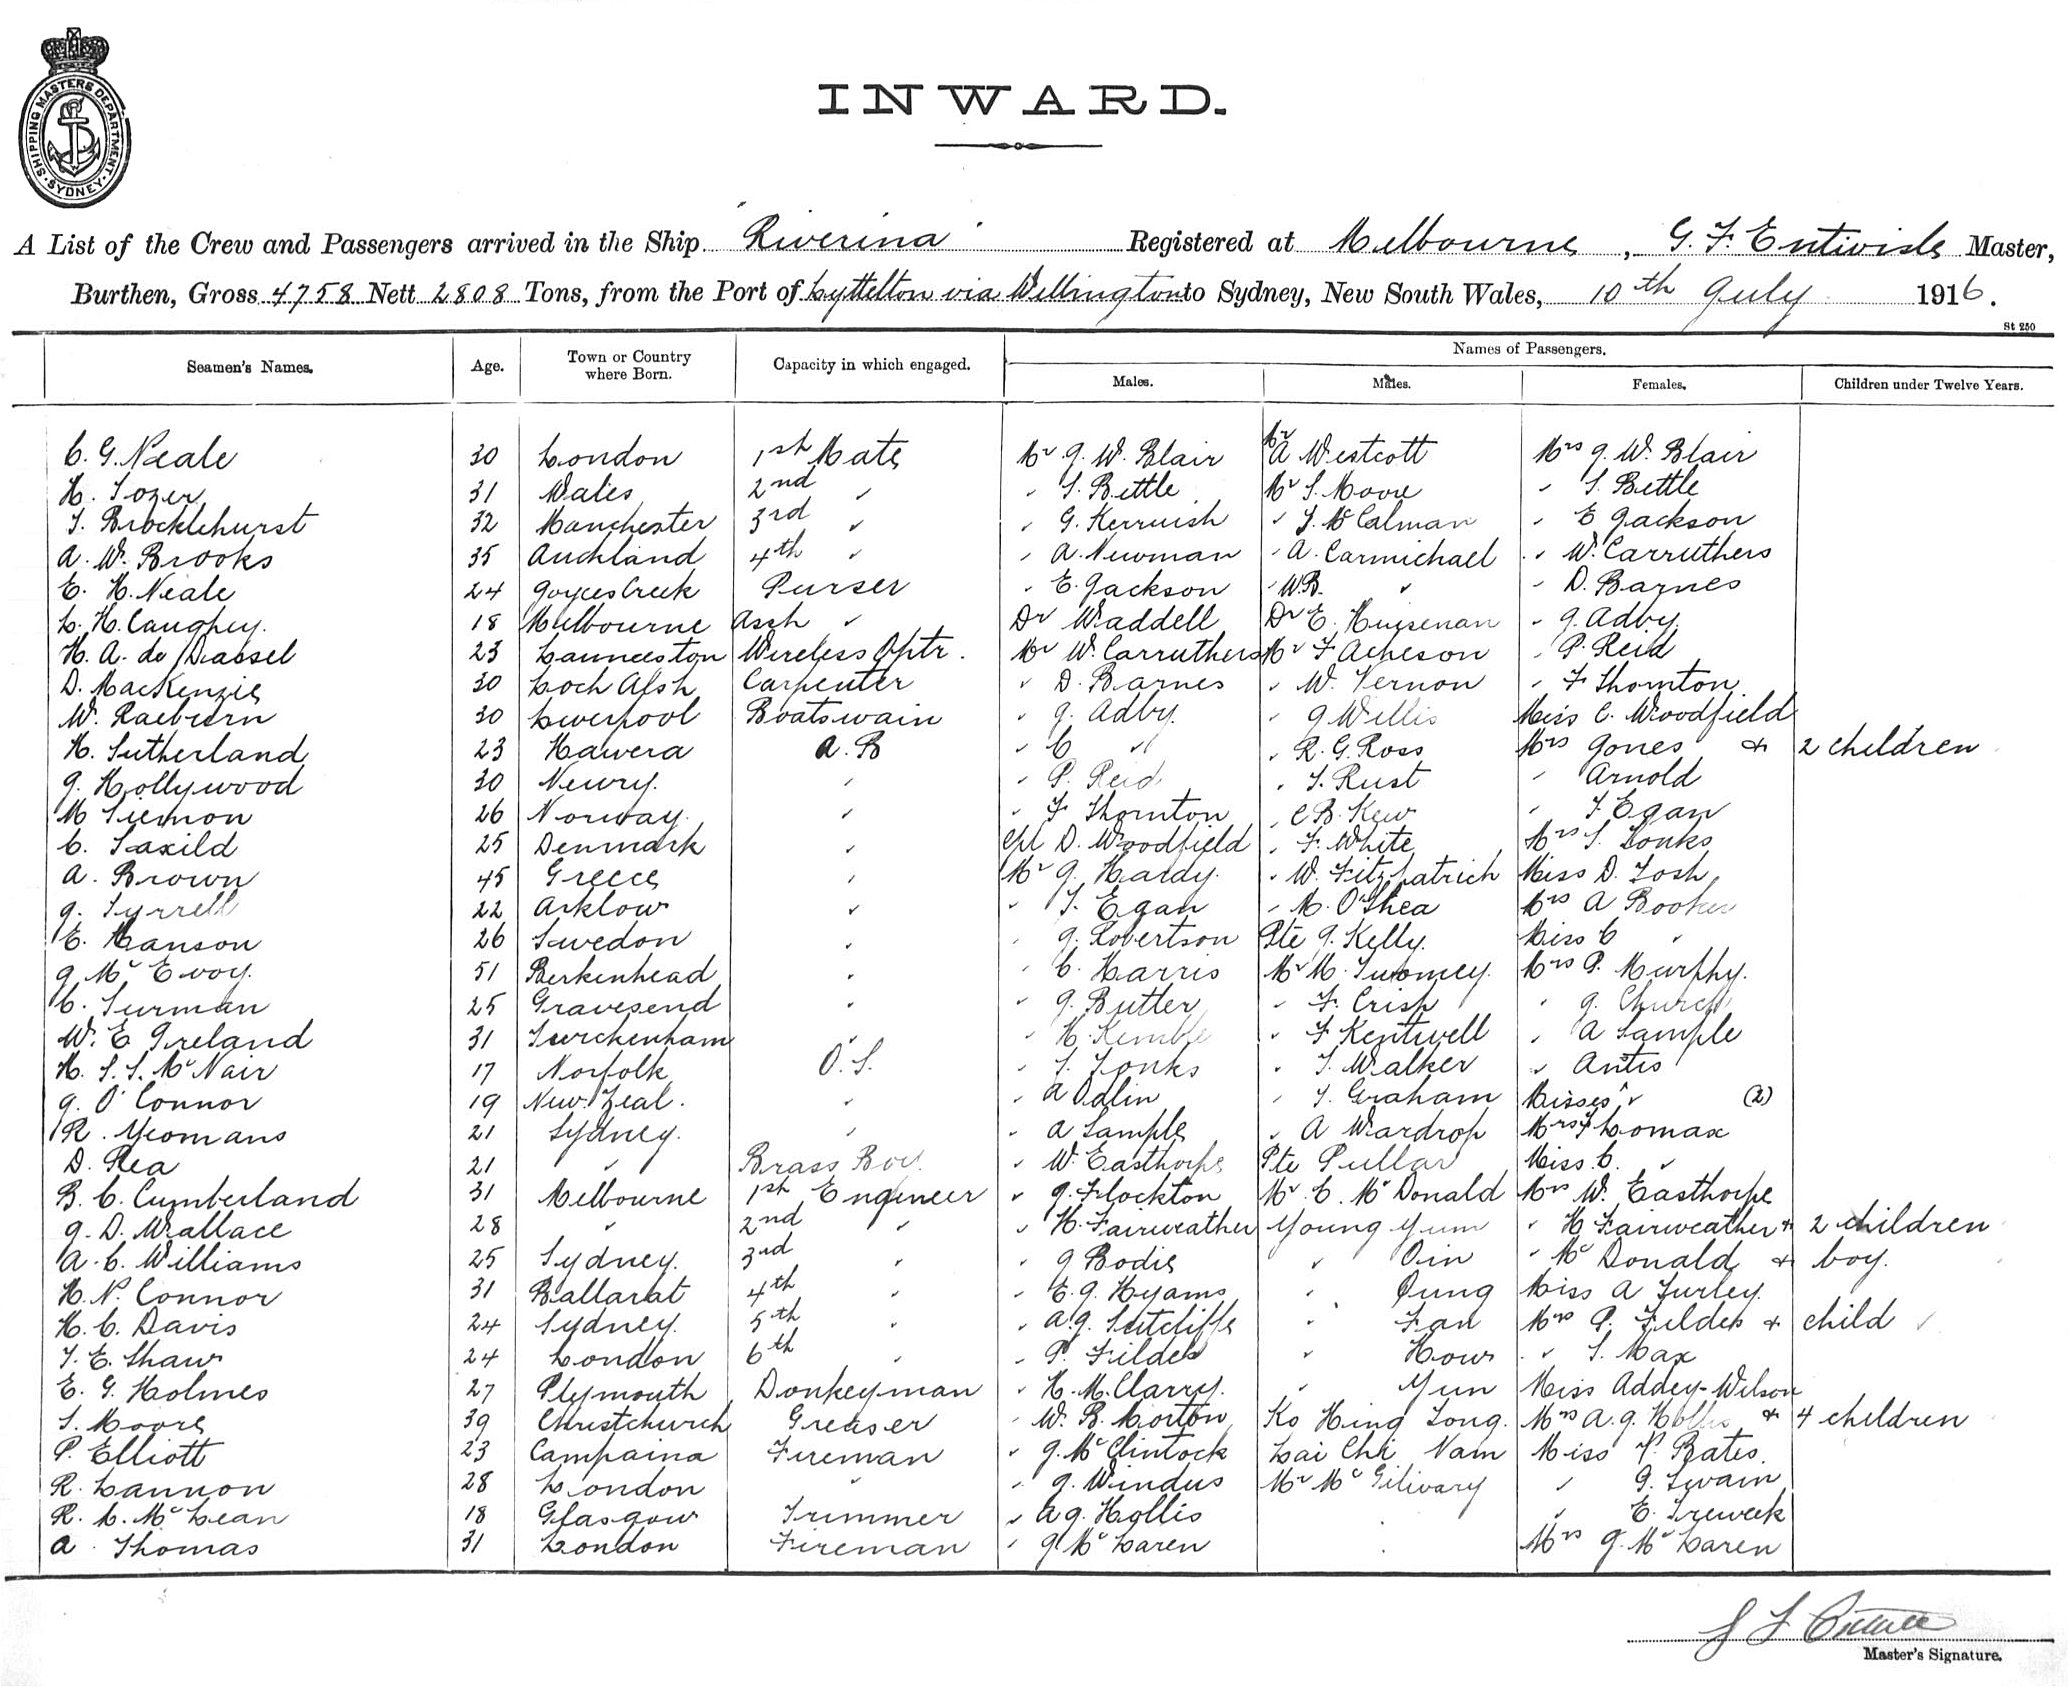 SHIPPING MASTERS DEPARTMENT. SYDNEY.
INWARD.
A List of the Crew and Passengers arrived in the Ship "Riverina" Registered at Melbourne, G. F. Entwisle Master,
Burthen, Gross 4758 Nett 2808 Tons, from the Port of Lyttelton via Wellington to Sydney, New South Wales, 10th July 1916.
St 250
Seamen's Names. Age. Town or Country where Born. Capacity in which engaged. Names of Passengers.
Males. Males. Females. Children under Twelve Years.
C. G. Neale 30 London 1st Mate Mr J. W. Blair Mr A Westcott Mrs J. W. Blair
H. Tozer 31 Wales 2nd " " S. Bettle Mr S. Moore " S. Bettle
T. Brocklehurst 32 Manchester 3rd " " G. Kerruish " J. McCalman " E Jackson
A. W. Brooks 35 Auckland 4th " " A. Newman " A. Carmichael " W. Carruthers
E. H. Neale 24 Joyces Creek Purser " E. Jackson " W.B. " " D. Barnes
L. H. Caughey. 18 Melbourne Asst " Dr Waddell Dr E. Huysenan " J. Adby.
H. A. de Dassel 23 Launceston Wireless Optr. Mr W. Carruthers Mr F Acheson " P. Reid
D. MacKenzie 30 Loch Alsh Carpenter " D. Barnes " W. Vernon " F Thornton
W. Raeburn 30 Liverpool Boatswain " J. Adby. " J Willis Miss C. Woodfield
H. Sutherland 23 Hawera A. B " C " " R. G. Ross Mrs Jones & 2 children
J. Hollywood 30 Newry. " " P. Reid " T. Rust " Arnold
M Siemon 26 Norway. " " F Thornton " C B. Kew " T. Egan
C. Saxild 25 Denmark " Cpl D. Woodfield " F. White Mrs S. Tonks
A. Brown 45 Greece " Mr J. Hardy. " W. Fitzpatrick Miss D. Tosh
J. Tyrrell 22 Arklow " " T. Egan " M. O'Shea Mrs A Booker
E. Hanson 26 Swedon " " J. Robertson Pte J. Kelly. Miss C "
J Mc Evoy. 51 Berkenhead " " C. Harris Mr M. Twomey. Mrs P. Murphy.
C. Surman 25 Gravesend " " J. Butter " F. Crisp " J. Church
W. E Ireland 31 Twickenham " " H. Kemble " F Kentwell " A Sample
H. S. S. McNair 17 Norfolk O. S. " S. Tonks " T. Walker " Antis
J. O'Connor 19 New. Zeal. " " A Odlin " T. Graham Misses " (2)
R. Yeomans 21 Sydney. " " A Sample " A Wardrop Mrs F Lomax
D. Rea 21 " Brass Boy. " W. Easthorpe Pte Pullar Miss C. "
B. C. Cumberland 31 Melbourne 1st Engineer " J. Flockton Mr C. McDonald Mrs W. Easthorpe
J. D. Wallace 28 " 2nd " " H. Fairweather Young Yum " H Fairweather & 2 children
A. C. Williams 25 Sydney. 3rd " " J Bodie " Oin " McDonald & boy.
H. N. Connor 31 Ballarat 4th " " E. J. Hyams " Qung Miss A Turley.
H. C. Davis 24 Sydney. 5th " " A. J. Sutcliffe " Fan Mrs P. Fildes & child
T. E. Shaw 24 London 6th " " P. Fildes " How " S. Max
E. G. Holmes 27 Plymouth Donkeyman " H. M. Clarry. " Yun Miss Addey-Wilson
S. Moore 39 Christchurch Greaser " W. B. Morton Ko Hing Tong. Mrs A. J. Hollis & 4 children
P. Elliott 23 Campaina Fireman " J. McClintock Lai Chi Nam Miss P. Bates.
R. Lannon 28 London " " J. Windus Mr McGilivary " G. Swain
R. C. McLean 18 Glasgow Trimmer " A J. Hollis " E. Treweek
A. Thomas 31 London Fireman " J McLaren Mrs J. McLaren
Master's Signature.